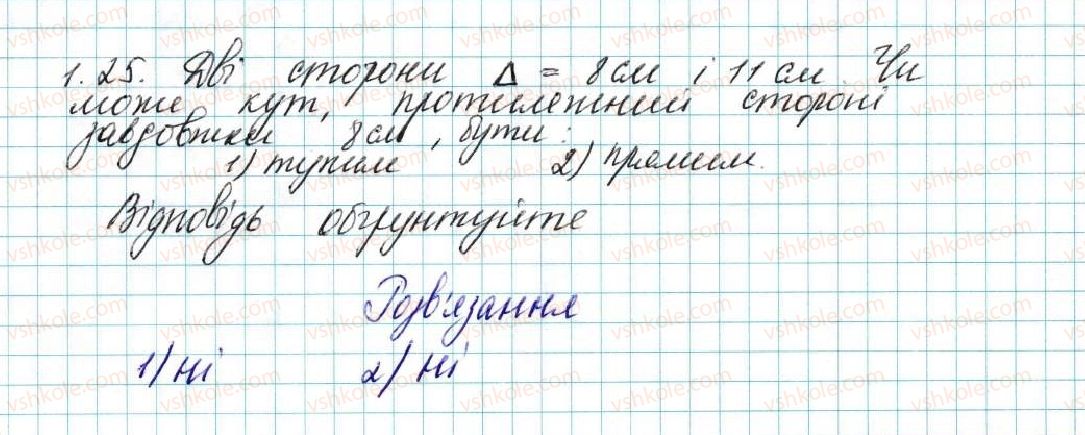 1.25. Дві сторони Δ = 8 см і 11 см. Чи
може кут, протилежний стороні
завдовжки 8 см, бути:
1) тупим 2) прямим.
Відповідь обґрунтуйте
Розв'язання
1) ні 2) ні